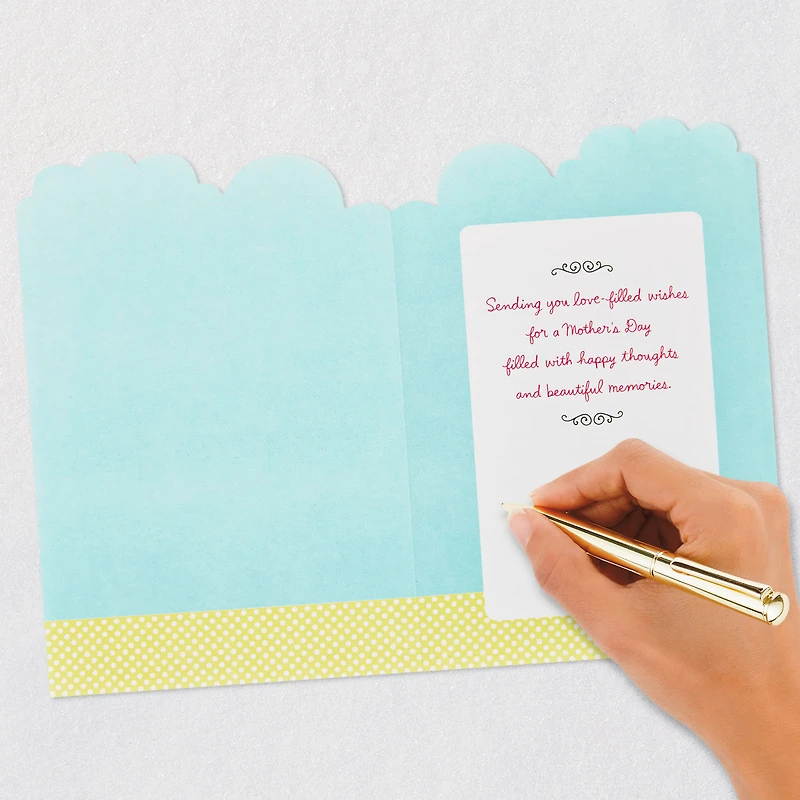 Sending you love-filled wishes
for a Mother's Day
filled with happy thoughts
and beautiful memories.